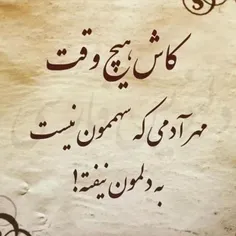 کاش هیچ وقت
مهر آدمی که سهممون نیست
به دلمون نیفته!